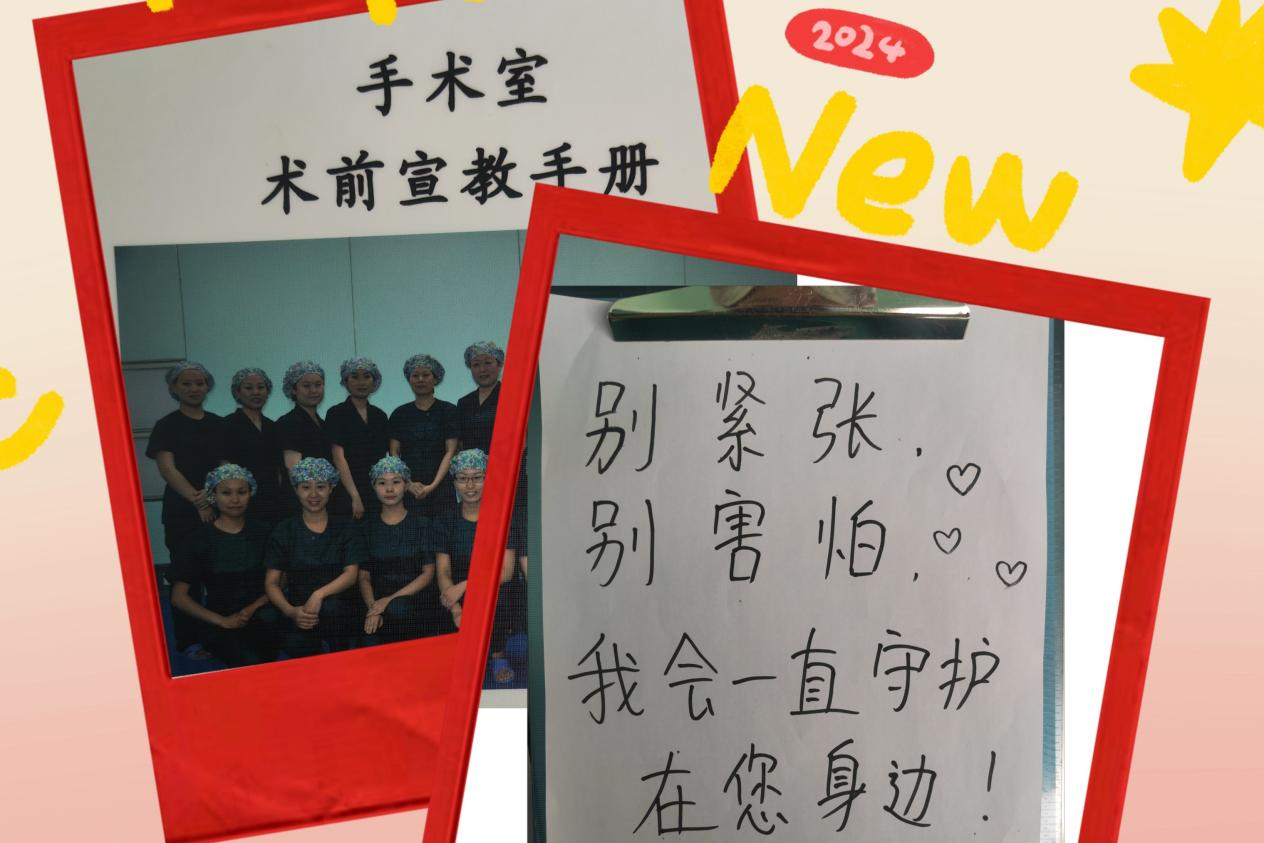 手术室
术前宣教手册
2024
New
别紧张.
别害怕.
我会一直守护
在您身边!